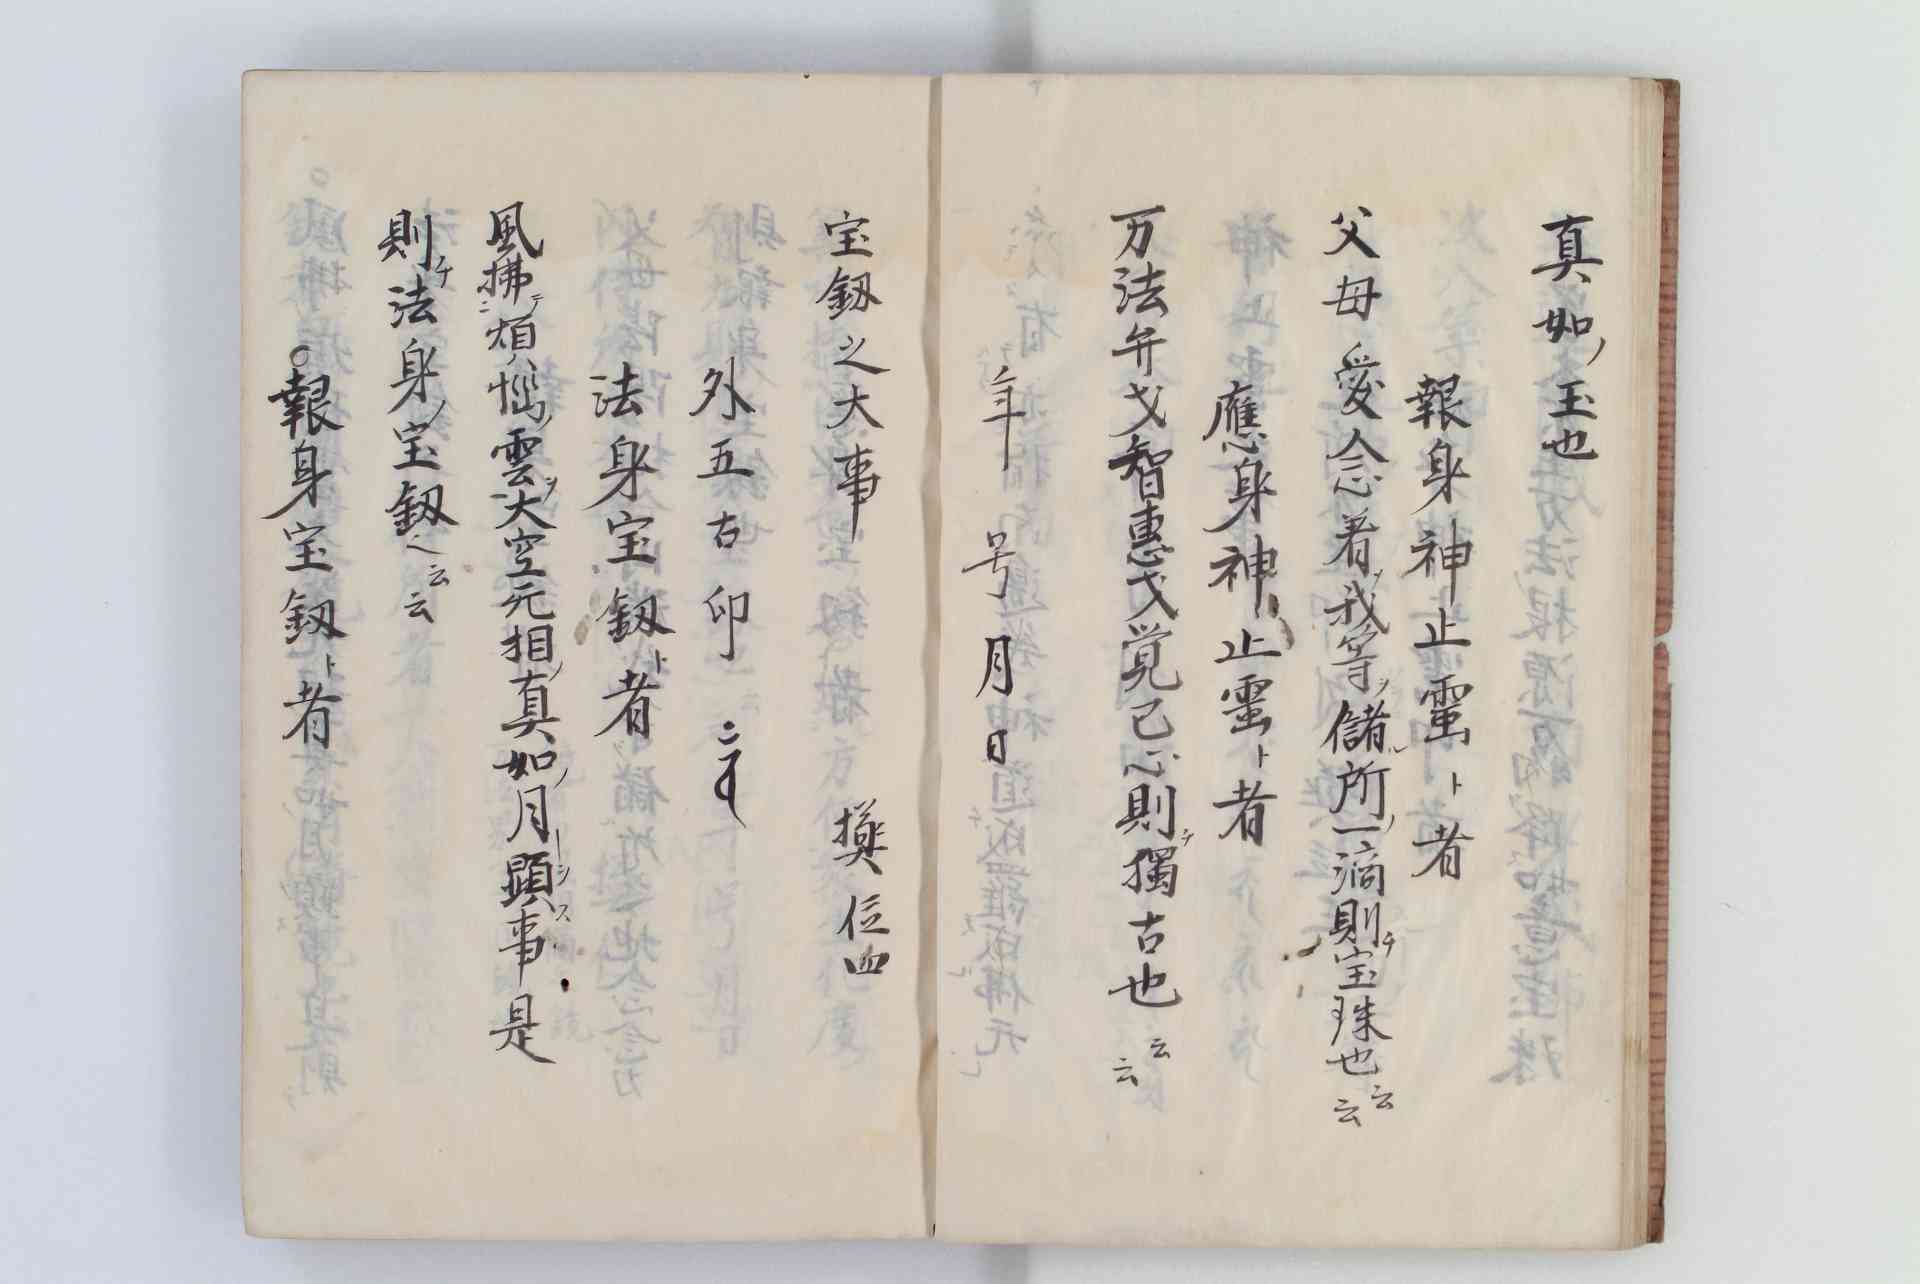 真如ノ玉也
報身神止霊ト者
父母愛念着ノ我等ヲ儲ル所ノ一滴則チ宝珠也云云
應身神止霊ト者
万法弁戈智惠戈覚己心則チ獨古也云云
年号月日
宝釼之大事
位四
外五古印
法身宝釼ト者
風拂テ煩ノ惱ノ雲ヲ大空无相ノ真如ノ月ヲ顕ス事是
則チ法身ノ宝釼也云云
○報身宝釼ト者